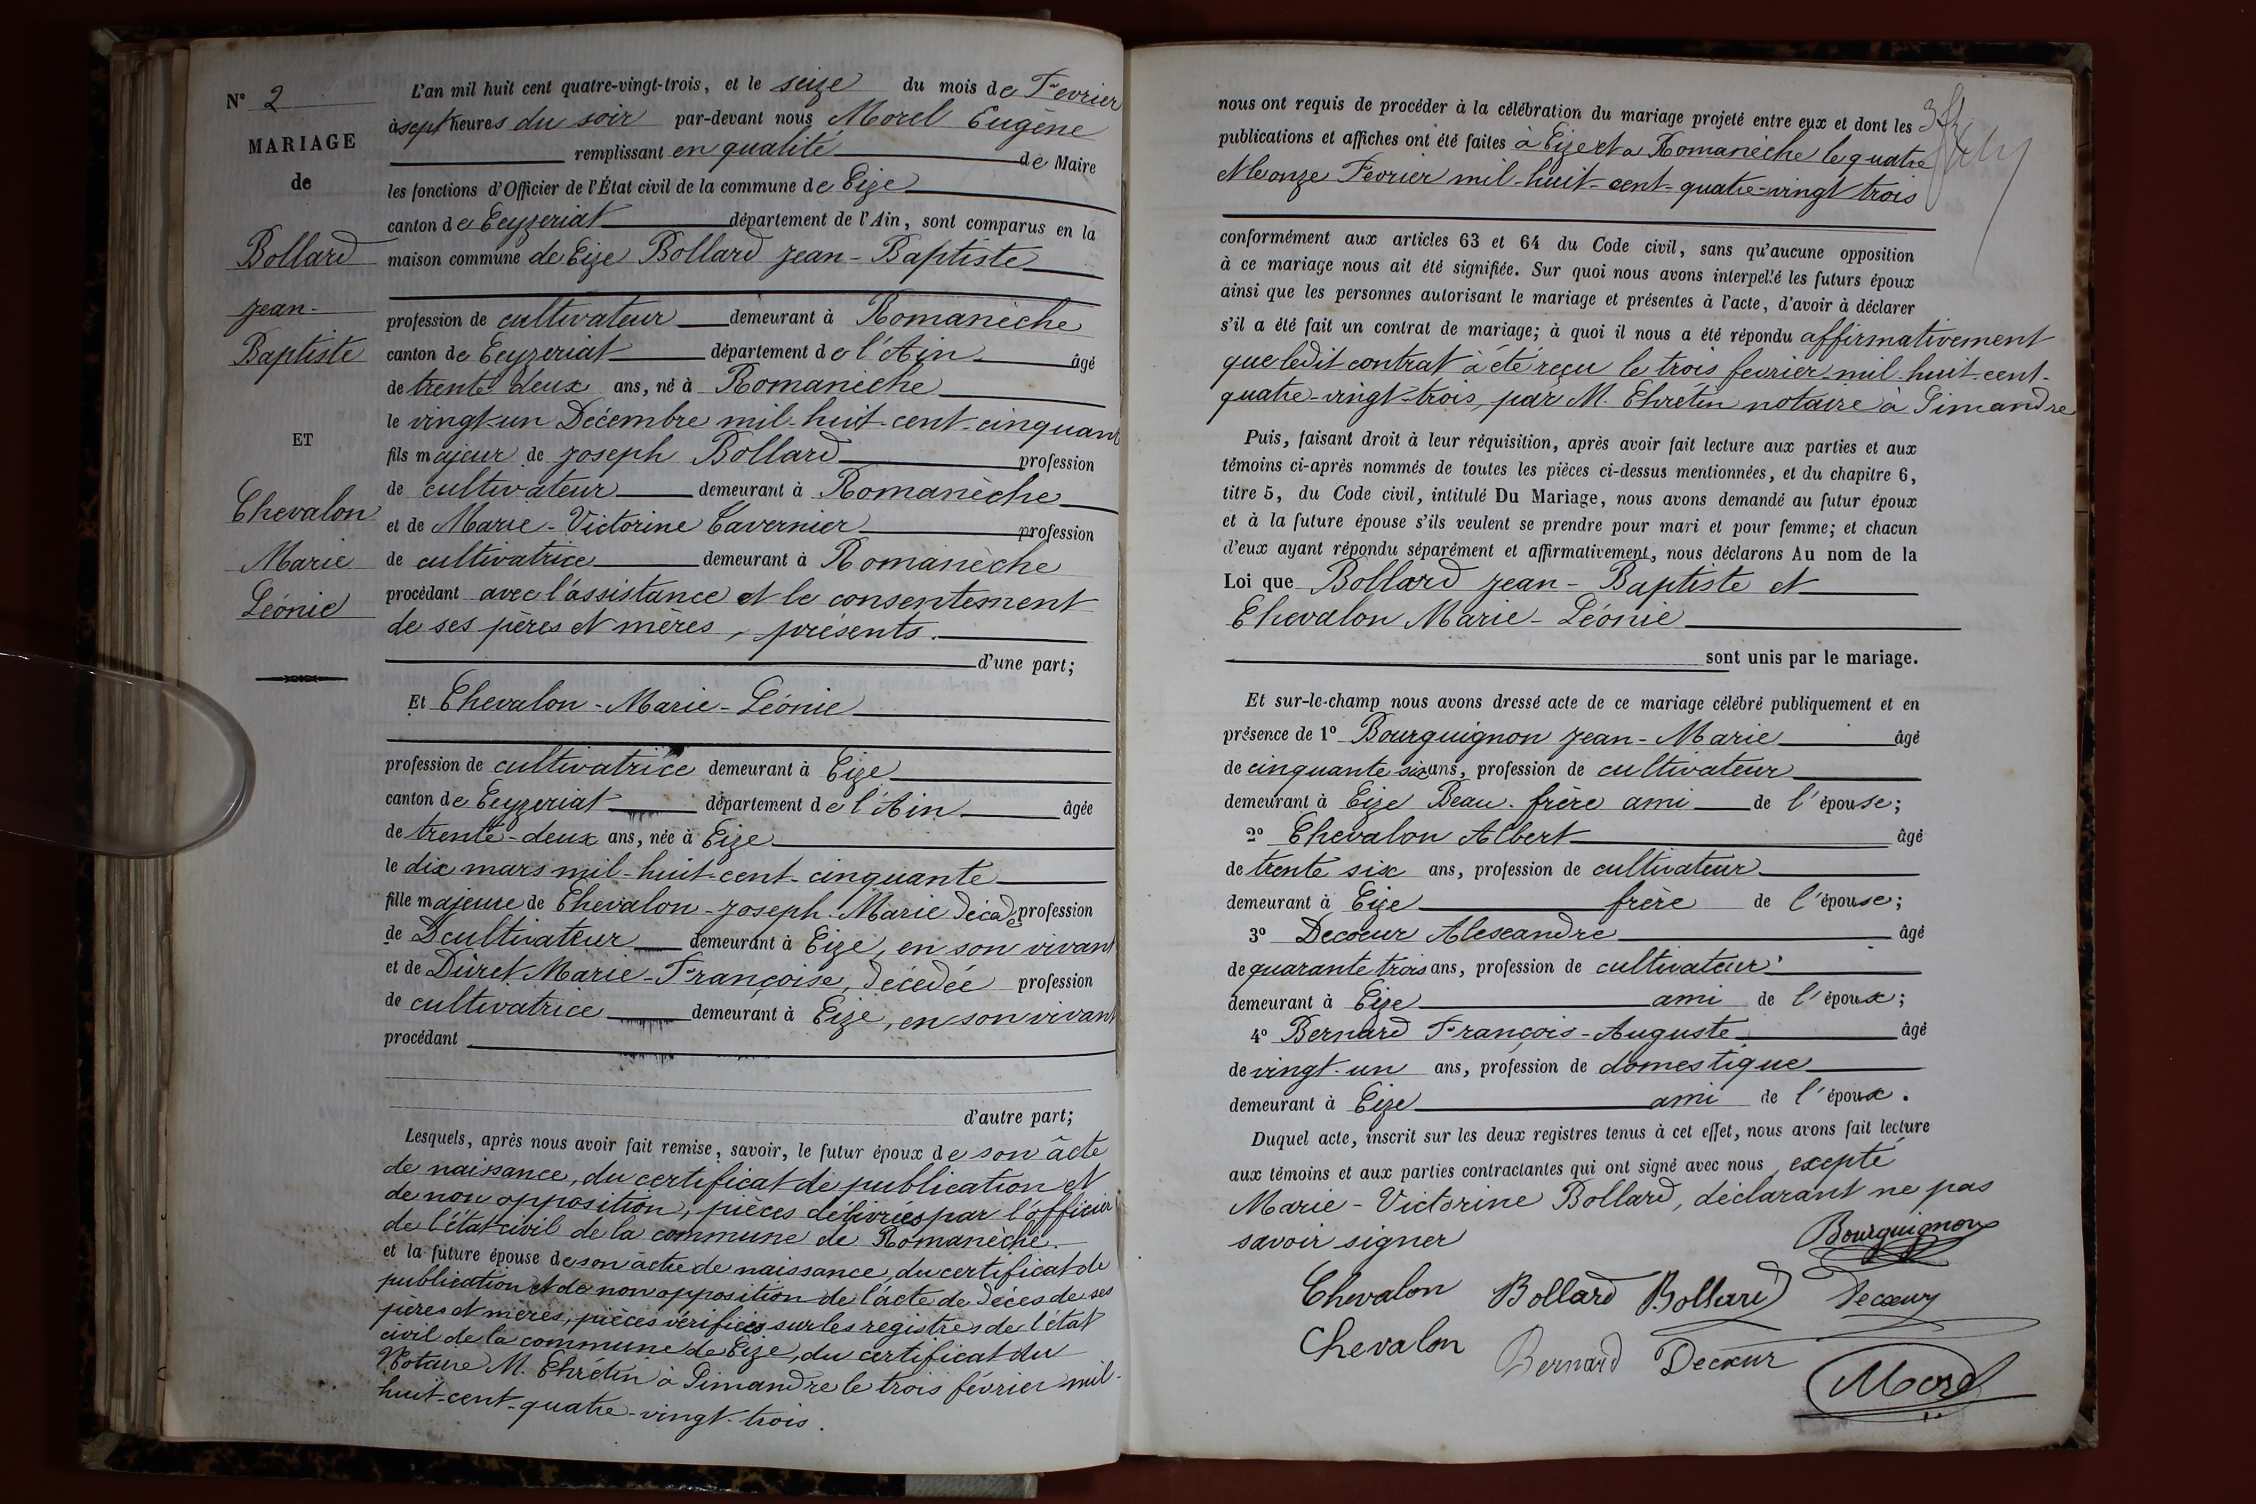 N° 2
MARIAGE
de
Bollard
Jean-
Baptiste
ET
Chevalon
Marie
Léonie
L'an mil huit cent quatre-vingt-trois, et le seize du mois de Fevrier
à sept heures du soir par-devant nous Morel Eugène
remplissant en qualité de Maire
les fonctions d'Officier de l'État civil de la commune de Eize
canton de Ceyzeriat département de l'Ain, sont comparus en la
maison commune de Eize Bollard Jean-Baptiste
profession de cultivateur demeurant à Romanèche
canton de Ceyzeriat département de l'Ain âgé
de trente deux ans, né à Romanèche
le vingt-un Décembre mil-huit-cent-cinquant
fils majeur de Joseph Bollard profession
de cultivateur demeurant à Romanèche
et de Marie-Victorine Tavernier profession
de cultivatrice demeurant à Romanèche
procédant avec l'assistance et le consentement
de ses pères et mères, présents.
d'une part;
Et Chevalon-Marie-Léonie
profession de cultivatrice demeurant à Eize
canton de Ceyzeriat département de l'Ain âgée
de trente-deux ans, née à Eize
le dix mars mil-huit-cent-cinquante
fille majeure de Chevalon-Joseph-Marie profession
de cultivateur demeurant à Eize, en son vivant
et de Duret Marie-Françoise, décedée profession
de cultivatrice demeurant à Eize, en son vivant
procédant
d'autre part;
Lesquels, après nous avoir fait remise, savoir, le futur époux de son âcte
de naissance, du certificat de publication et
de non opposition, pièces delivrées par l'officier
de l'état civil de la commune de Romanèche.
et la future épouse de son âcte de naissance, du certificat de
publication et de non opposition de l'acte de déces de ses
pères et mères, pièces vérifiées sur les registres de l'état
civil de la commune de Eize, du certificat du
Notaire M. Chrétin à Simandre le trois février mil-
huit-cent-quatre-vingt-trois.
nous ont requis de procéder à la célébration du mariage projeté entre eux et dont les
publications et affiches ont été faites à Eize et a Romanèche le quatre
et le onze Fevrier mil-huit-cent-quatre-vingt trois
conformément aux articles 63 et 64 du Code civil, sans qu'aucune opposition
à ce mariage nous ait été signifiée. Sur quoi nous avons interpellé les futurs époux
ainsi que les personnes autorisant le mariage et présentes à l'acte, d'avoir à déclarer
s'il a été fait un contrat de mariage; à quoi il nous a été répondu affirmativement
que ledit contrat à été reçu le trois fevrier mil-huit-cent-
quatre-vingt-trois, par M. Chrétin notaire à Simandre
Puis, faisant droit à leur réquisition, après avoir fait lecture aux parties et aux
témoins ci-après nommés de toutes les pièces ci-dessus mentionnées, et du chapitre 6,
titre 5, du Code civil, intitulé Du Mariage, nous avons demandé au futur époux
et à la future épouse s'ils veulent se prendre pour mari et pour femme; et chacun
d'eux ayant répondu séparément et affirmativement, nous déclarons Au nom de la
Loi que Bollard Jean-Baptiste et
Chevalon Marie-Léonie
sont unis par le mariage.
Et sur-le-champ nous avons dressé acte de ce mariage célébré publiquement et en
présence de 1° Bourguignon Jean-Marie âgé
de cinquante six ans, profession de cultivateur
demeurant à Eize Beau-frère ami de l'épouse;
2° Chevalon Albert âgé
de trente six ans, profession de cultivateur
demeurant à Eize frère de l'épouse;
3° Decoeur Alexandre âgé
de quarante trois ans, profession de cultivateur
demeurant à Eize ami de l'époux;
4° Bernard François-Auguste âgé
de vingt-un ans, profession de domestique
demeurant à Eize ami de l'époux.
Duquel acte, inscrit sur les deux registres tenus à cet effet, nous avons fait lecture
aux témoins et aux parties contractantes qui ont signé avec nous, excepté
Marie-Victorine Bollard, déclarant ne pas
savoir signer
Bourguignon
Chevalon Bollard Bollard Decœur
Chevalon Bernard Decœur
Morel